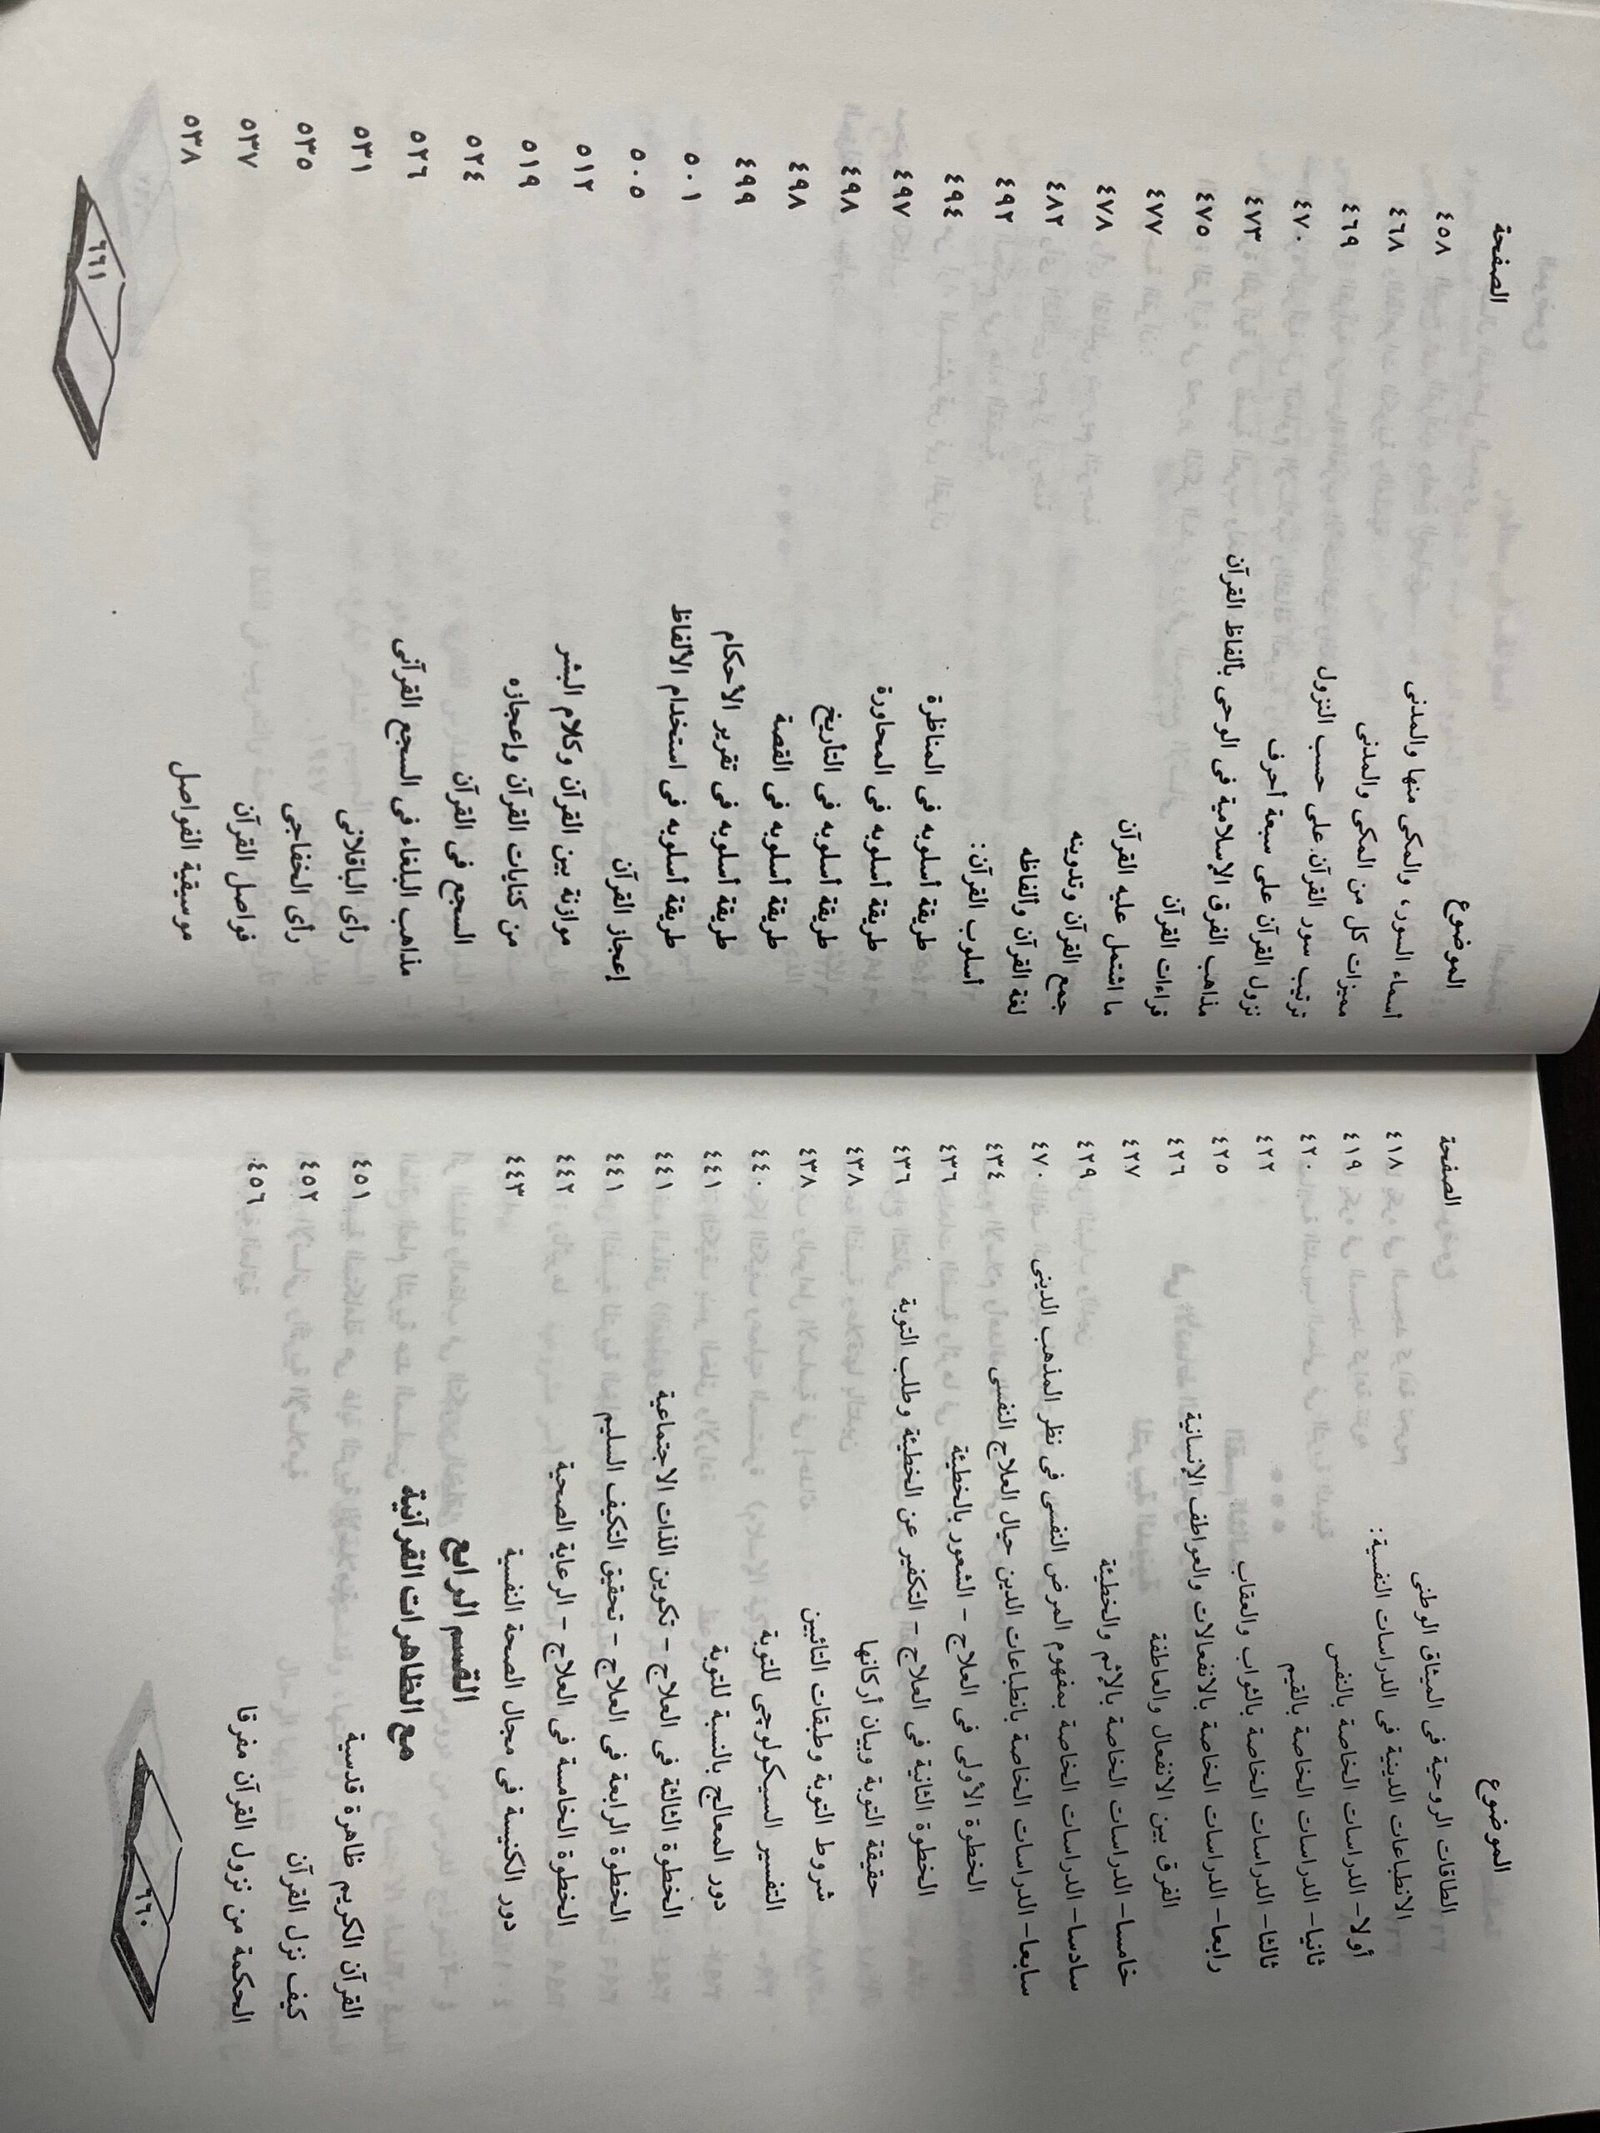 الموضوع الصفحة
الطاقات الروحية فى الميثاق الوطنى ٤١٨
الانطباعات الدينية فى الدراسات النفسية:
أولا- الدراسات الخاصة بالنفس ٤١٩
ثانيا- الدراسات الخاصة بالقيم ٤٢٠
ثالثا- الدراسات الخاصة بالثواب والعقاب ٤٢٢
رابعا- الدراسات الخاصة بالانفعالات والعواطف الإنسانية ٤٢٥
الفرق بين الانفعال والعاطفة ٤٢٦
خامسا- الدراسات الخاصة بالإثم والخطيئة ٤٢٧
سادسا- الدراسات الخاصة بمفهوم المرض النفسى فى نظر المذهب الدينى ٤٢٩
سابعا- الدراسات الخاصة بانطباعات الدين حيال العلاج النفسى ٤٧٠
الخطوة الأولى فى العلاج - الشعور بالخطيئة ٤٣٤
الخطوة الثانية فى العلاج - التكفير عن الخطيئة وطلب التوبة ٤٣٦
حقيقة التوبة وبيان أركانها ٤٣٦
شروط التوبة وطبقات التائبين ٤٣٨
التفسير السيكولوچى للتوبة ٤٣٨
دور المعالج بالنسبة للتوبة ٤٤٠
الخطوة الثالثة فى العلاج - تكوين الذات الاجتماعية ٤٤١
الخطوة الرابعة فى العلاج - تحقيق التكيف السليم ٤٤١
الخطوة الخامسة فى العلاج - الرعاية الصحية ٤٤١
دور الكنيسة فى مجال الصحة النفسية ٤٤٢
٤٤٣
القسم الرابع
مع الظاهرات القرآنية
القرآن الكريم ظاهرة قدسية ٤٥١
كيف نزل القرآن ٤٥٢
الحكمة من نزول القرآن مفرقا ٤٥٦
٦٦٠
الموضوع الصفحة
أسماء السور، والمكى منها والمدنى ٤٥٨
مميزات كل من المكى والمدنى ٤٦٨
ترتيب سور القرآن على حسب النزول ٤٦٩
نزول القرآن على سبعة أحرف ٤٧٠
مذاهب الفرق الإسلامية فى الوحى بألفاظ القرآن ٤٧٣
قراءات القرآن ٤٧٥
ما اشتمل عليه القرآن ٤٧٧
جمع القرآن وتدوينه ٤٧٨
لغة القرآن وألفاظه ٤٨٢
أسلوب القرآن: ٤٩٢
طريقة أسلوبه فى المناظرة ٤٩٤
طريقة أسلوبه فى المحاورة ٤٩٧
طريقة أسلوبه فى التأريخ ٤٩٨
طريقة أسلوبه فى القصة ٤٩٨
طريقة أسلوبه فى تقرير الأحكام ٤٩٩
طريقة أسلوبه فى استخدام الألفاظ ٥٠١
إعجاز القرآن ٥٠٥
موازنة بين القرآن وكلام البشر ٥١٢
من كنايات القرآن وإعجازه ٥١٩
السجع فى القرآن ٥٢٤
مذاهب البلغاء فى السجع القرآنى ٥٢٦
رأى الباقلانى ٥٣١
رأى الخفاجى ٥٣٥
فواصل القرآن ٥٣٧
موسيقية الفواصل ٥٣٨
٦٦١